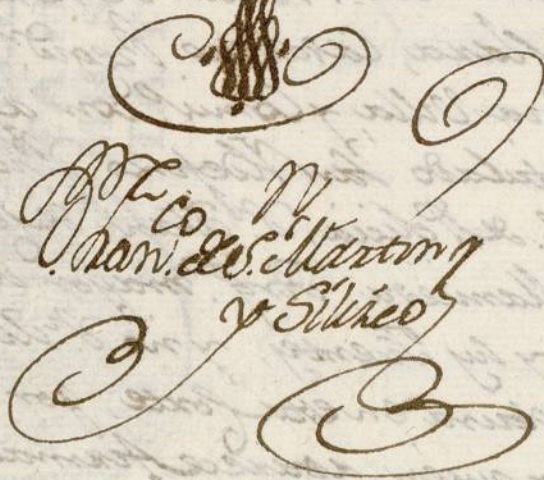 Fran.co de S. Martin
y Siliceo